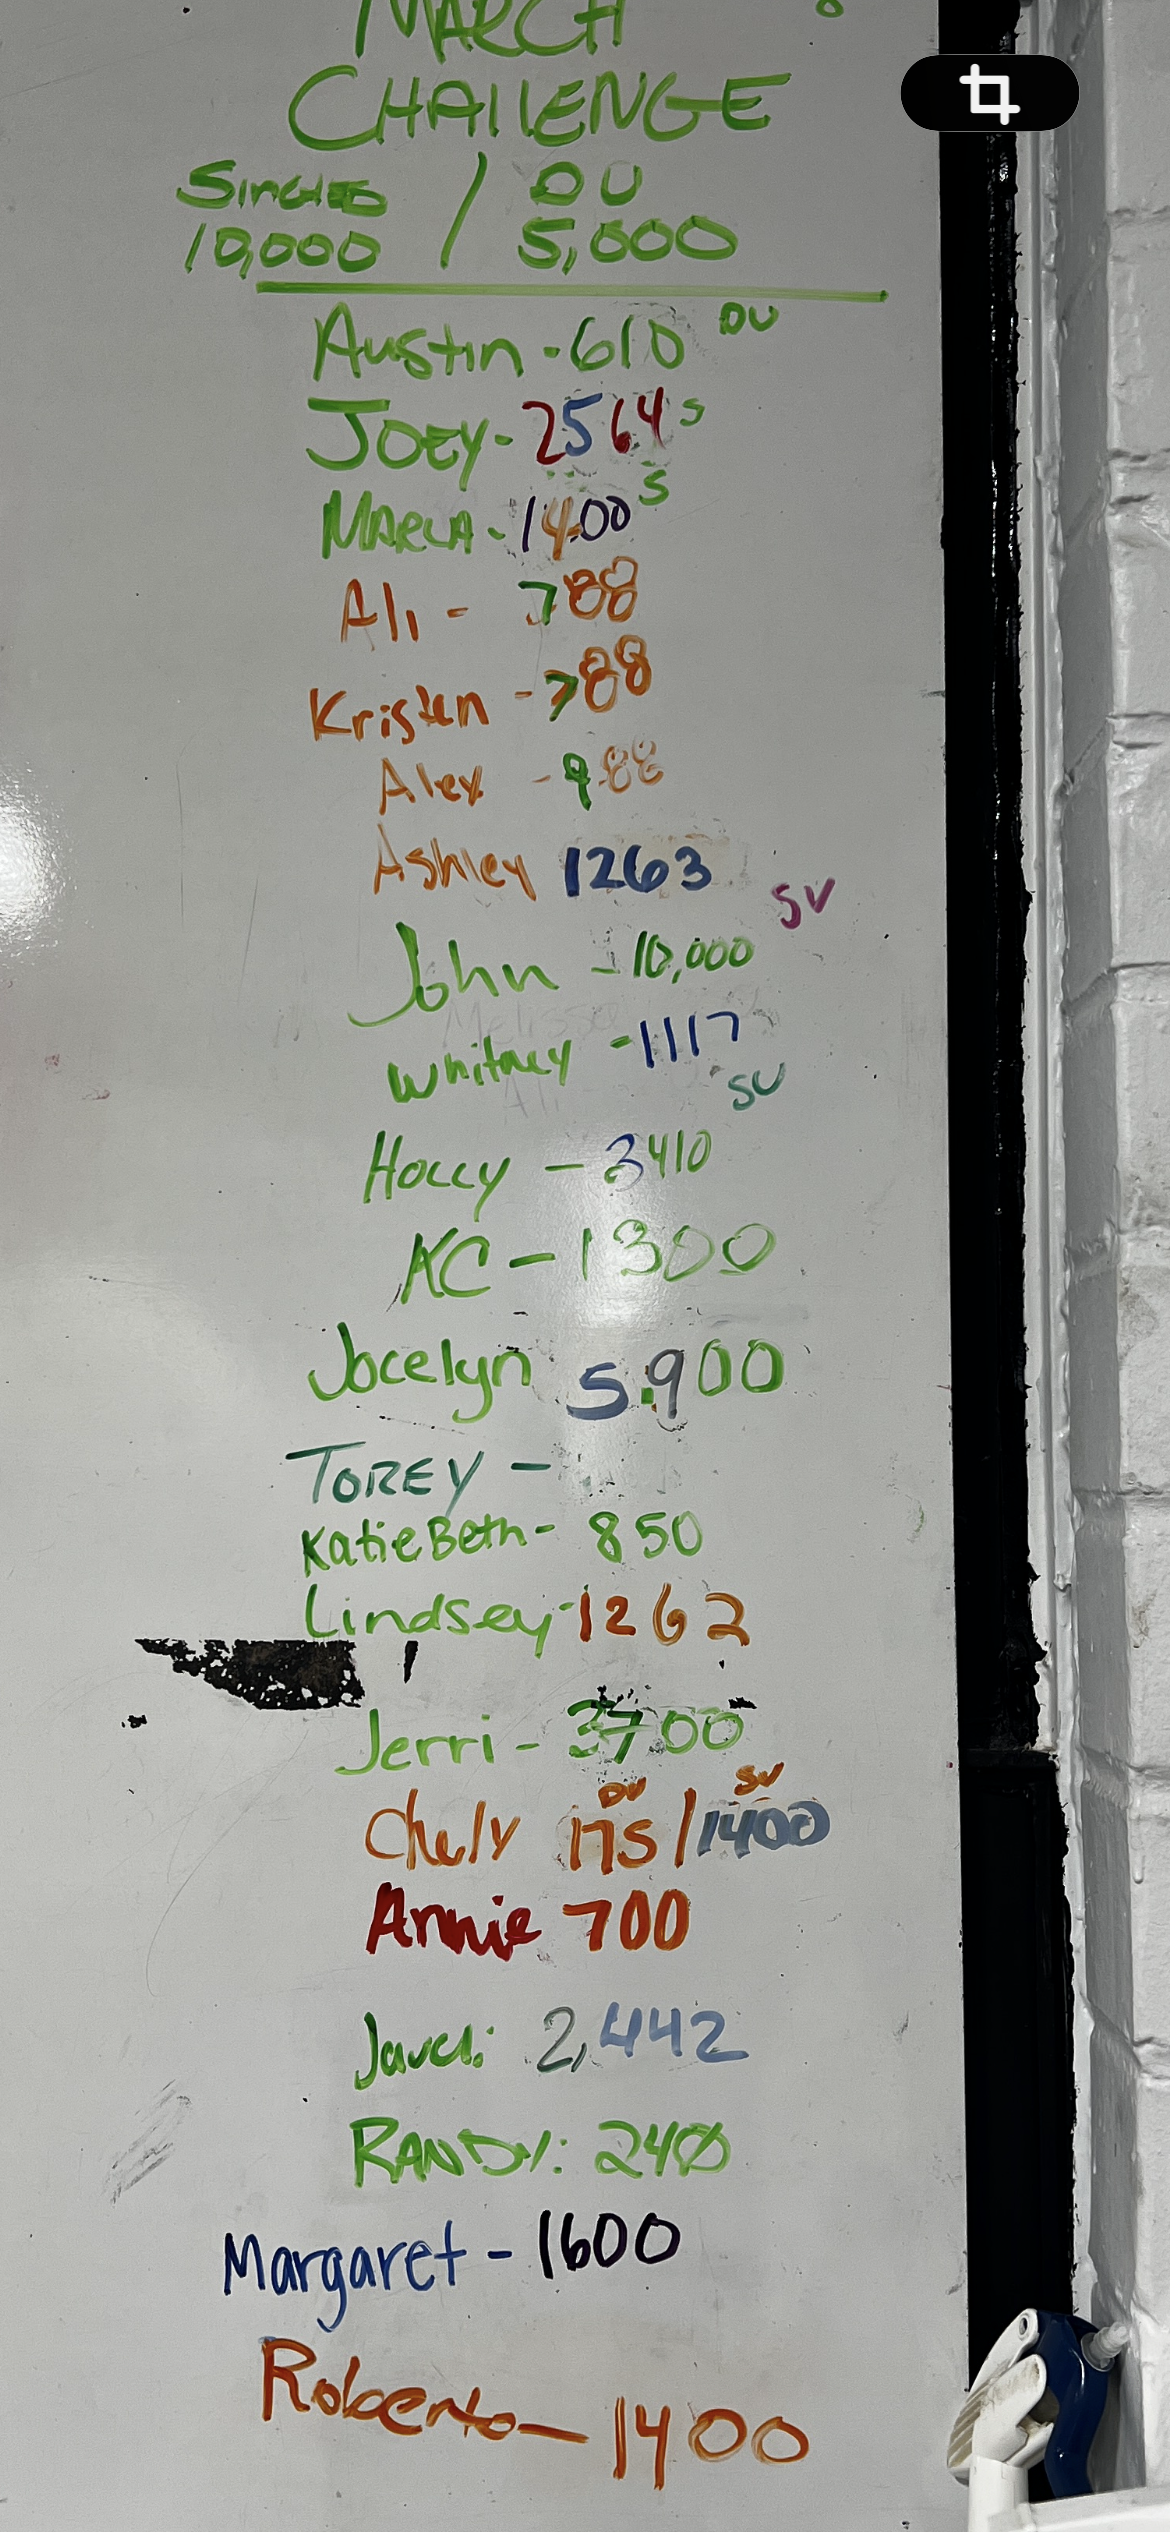 MARCH
CHAllENGE
SINGLES / DU
10,000 / 5,000
Austin - 610 DU
JOEY - 2564 S
MARLA - 1400 S
Ali - 788
Kristen - 788
Alex - 988
Ashley 1263
John - 10,000 SU
Whitney - 1117
Holly - 3410 SU
KC - 1300
Jocelyn 5,900
TOREY -
KatieBeth - 850
Lindsey - 1262
Jerri - 3700
175 DU / 1400 SU
Annie 700
2,442
RANDY: 240
Margaret - 1600
Roberto - 1400